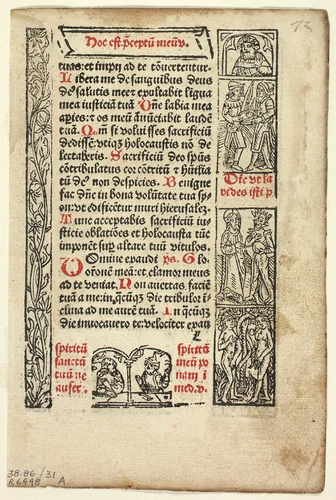 Hoc est p̄ceptū meū.
tuas: et impij ad te cōuertentur.
Libera me de sanguibus deus
deus salutis mee: et exultabit līgua
mea iusticiā tuā. Dn̄e labia mea
apies: et os meū ānūciabit laudē
tuā. Qm̄ si voluisses sacrificiū
dedissē: vtiqꝫ holocaustis nō de
lectaberis. Sacrificiū deo spūs
cōtribulatus: cor cōtritū & humilia
tū deus non despicies. Benigne
fac dn̄e in bona volūtate tua syon: vt edificētur muri hierusalē.
Tunc acceptabis sacrificiū iu
sticie oblatiōes et holocausta: tūc
imponēt sup altare tuū vitulos.
Domine exaudi ps. Glo.
orōnē meā: et clamor meus
ad te veniat. Non auertas faciē
tuā a me: in q̄cūqꝫ die tribulor ī
clina ad me aurē tuā. In q̄cūqꝫ
die inuocauero te: velociter exau
Dn̄e
spiritū
sanctū
tuū ne
aufer
spiritū
meū po
nam ī
med. v.
38.86/31
R6448 A